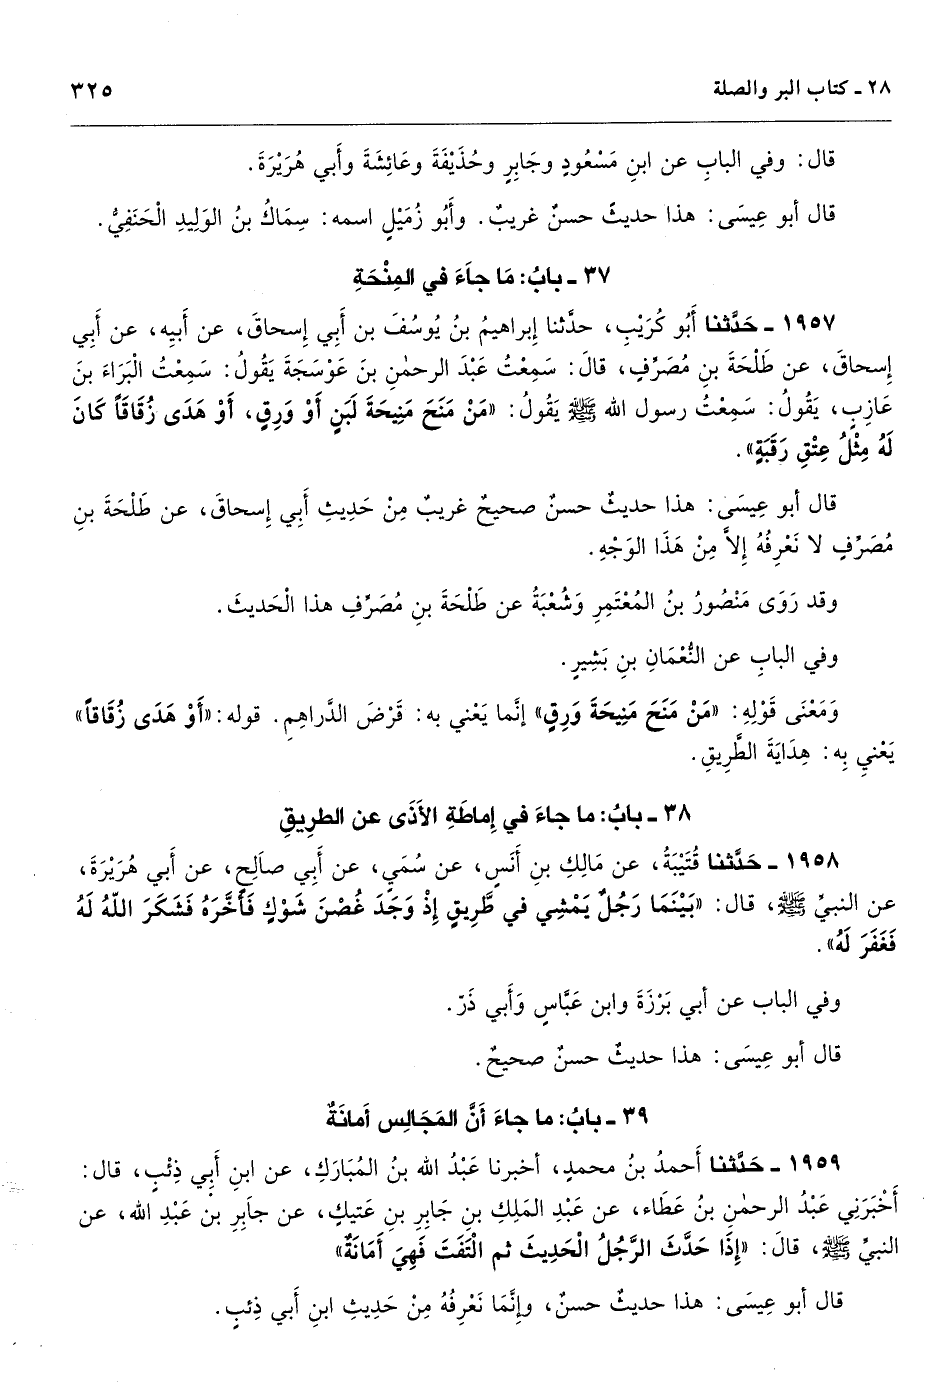 ٢٨ ـ كتاب البر والصلة ٣٢٥
قال: وفي البابِ عن ابنِ مَسْعُودٍ وجَابِرٍ وحُذَيْفَةَ وعَائِشَةَ وأَبي هُرَيْرَةَ.
قال أبو عِيسَى: هذا حديثٌ حسنٌ غريبٌ. وأَبُو زُمَيْلٍ اسمه: سِمَاكُ بنُ الوَلِيدِ الْحَنَفِيُّ.
٣٧ ـ بابُ: مَا جاَءَ في المِنْحَةِ
١٩٥٧ ـ حَدَّثنا أَبُو كُرَيْبٍ، حدَّثنا إبراهيمُ بنُ يُوسُفَ بن أَبي إسحاقَ، عن أَبيِه، عن أَبي
إسحاقَ، عن طَلْحَةَ بنِ مُصَرِّفٍ، قالَ: سَمِعْتُ عَبْدَ الرحمٰنِ بنَ عَوْسَجَةَ يَقُولُ: سَمِعْتُ الْبَرَاءَ بنَ
عَازِبٍ، يَقُولُ: سَمِعْتُ رسول الله ﷺ يَقُولُ: «مَنْ مَنَحَ مَنِيحَةَ لَبَنٍ أَوْ وَرِقٍ، أَوْ هَدَى زُقَاقاً كَانَ
لَهُ مِثْلُ عِتْقِ رَقَبَةٍ».
قال أبو عِيسَى: هذا حديثٌ حسنٌ صحيحٌ غريبٌ مِنْ حَدِيثِ أَبي إسحاقَ، عن طَلْحَةَ بنِ
مُصَرِّفٍ لا نَعْرِفُهُ إِلاَّ مِنْ هَذَا الوَجْهِ.
وقد رَوَى مَنْصُورُ بنُ المُعْتَمِرِ وَشُعْبَةُ عن طَلْحَةَ بنِ مُصَرِّفٍ هذا الْحَديثَ.
وفي البابِ عن النُّعْمَانِ بنِ بَشِيرٍ.
وَمَعْنَى قَوْلِهِ: «مَنْ مَنَحَ مَنِيحَةَ وَرِقٍ» إنَّما يَعْني به: قَرْضَ الدَّراهِمِ. قوله: «أَوْ هَدَى زُقَاقاً»
يَعْنيِ بِه: هِدَايَةَ الطَّرِيقِ.
٣٨ ـ بابُ: ما جاءَ في إماطَةِ الأَذَى عن الطرِيقِ
١٩٥٨ ـ حَدَّثنا قُتَيْبَةُ، عن مَالِكِ بنِ أَنَسٍ، عن سُمَيٍ، عن أَبي صالَحٍ، عن أَبي هُرَيْرَةَ،
عن النبيِّ ﷺ، قال: «بَيْنَمَا رَجُلٌ يَمْشِي في طَّرِيقٍ إذْ وَجَدَ غُصْنَ شَوْكٍ فَأَخَّرَهُ فَشَكَرَ اللّهُ لَهُ
فَغَفَرَ لَهُ».
وفي الباب عن أبي بَرْزَةَ وابن عَبَّاسٍ وَأَبي ذَرّ.
قال أبو عِيسَى: هذا حديثٌ حسنٌ صحيحٌ.
٣٩ ـ بابُ: ما جاءَ أَنَّ المَجَالِس أمانَةٌ
١٩٥٩ ـ حَدَّثنا أَحمدُ بنُ محمدٍ، أخبرنا عَبْدُ الله بنُ المُبَارَكِ، عن ابنِ أَبِي ذِئْبٍ، قال:
أَخْبَرَنِي عَبْدُ الرحمٰنِ بنُ عَطَاء، عن عَبْدِ المَلِكِ بنِ جَابِرِ بنِ عَتيكٍ، عن جاَبِرِ بن عَبْدِ الله، عن
النبيِّ ﷺ، قالَ: «إِذَا حَدَّثَ الرَّجُلُ الْحَدِيثَ ثم الْتَفَتَ فَهِيَ أَمَانَةٌ»
قال أبو عِيسَى: هذا حديثٌ حسنٌ، وإنَّمَا نَعْرِفُهُ مِنْ حَدِيثِ ابنِ أَبي ذِئبٍ.